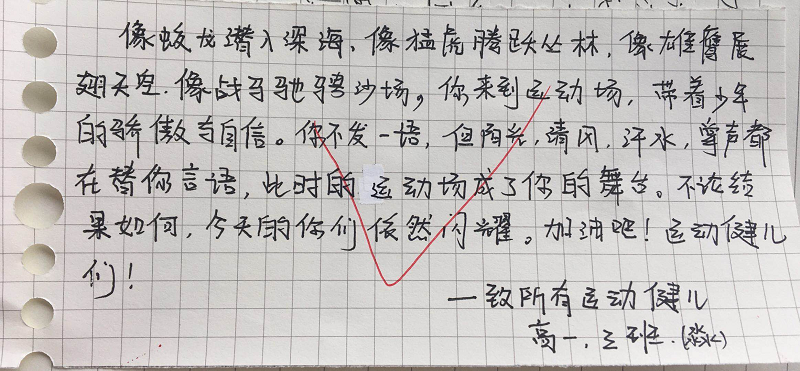 像蛟龙潜入深海,像猛虎腾跃丛林,像雄鹰展
翅天空.像战马驰骋沙场。你来到运动场,带着少年
的骄傲与自信。你不发一语,但阳光,清风,汗水,掌声都
在替你言语,此时的运动场成了你的舞台。不论结
果如何,今天的你们依然闪耀。加油吧!运动健儿
们!
一致所有运动健儿
高一.三班.